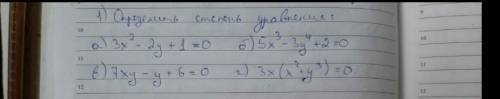 1) Определить степень уравнения:
а) 3x² - 2y + 1 = 0 б) 5x³ - 3y⁴ + 2 = 0
в) 7xy - y + 6 = 0 г) 3x(x² + y³) = 0.